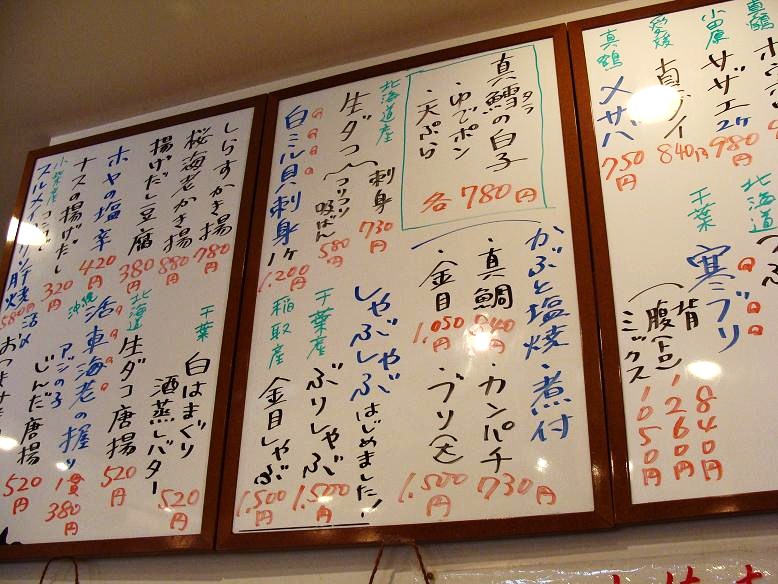 小田原
サザエ
2ケ
980円
愛媛
真ダイ
840円
真鶴
メサバ
750円
北海道
千葉
寒ブリ
背
840円
腹(トロ)
1260円
ミックス
1050円
真鱈の白子
タラ
・ゆでポン
・天ぷら
各780円
北海道産
生ダコ
刺身
730円
コリコリ
吸ばん
580円
白ミル貝刺身
1ケ
1,200円
かぶと塩焼・煮付
・真鯛
840円
・カンパチ
730円
・金目
1,050円
・ブリ(大)
1,500円
しゃぶしゃぶ
はじめました!
千葉産
ぶりしゃぶ
1,500円
稲取産
金目しゃぶ
1,500円
しらすかき揚
780円
桜海老かき揚
880円
揚げだし豆腐
380円
ホヤの塩辛
420円
ナスの揚げだし
320円
小柴産
580円
千葉
白はまぐり
酒蒸しバター
520円
北海道
生ダコ唐揚
520円
活車海老の握り
1貫
380円
沖縄
アジの子
じんだ唐揚
520円